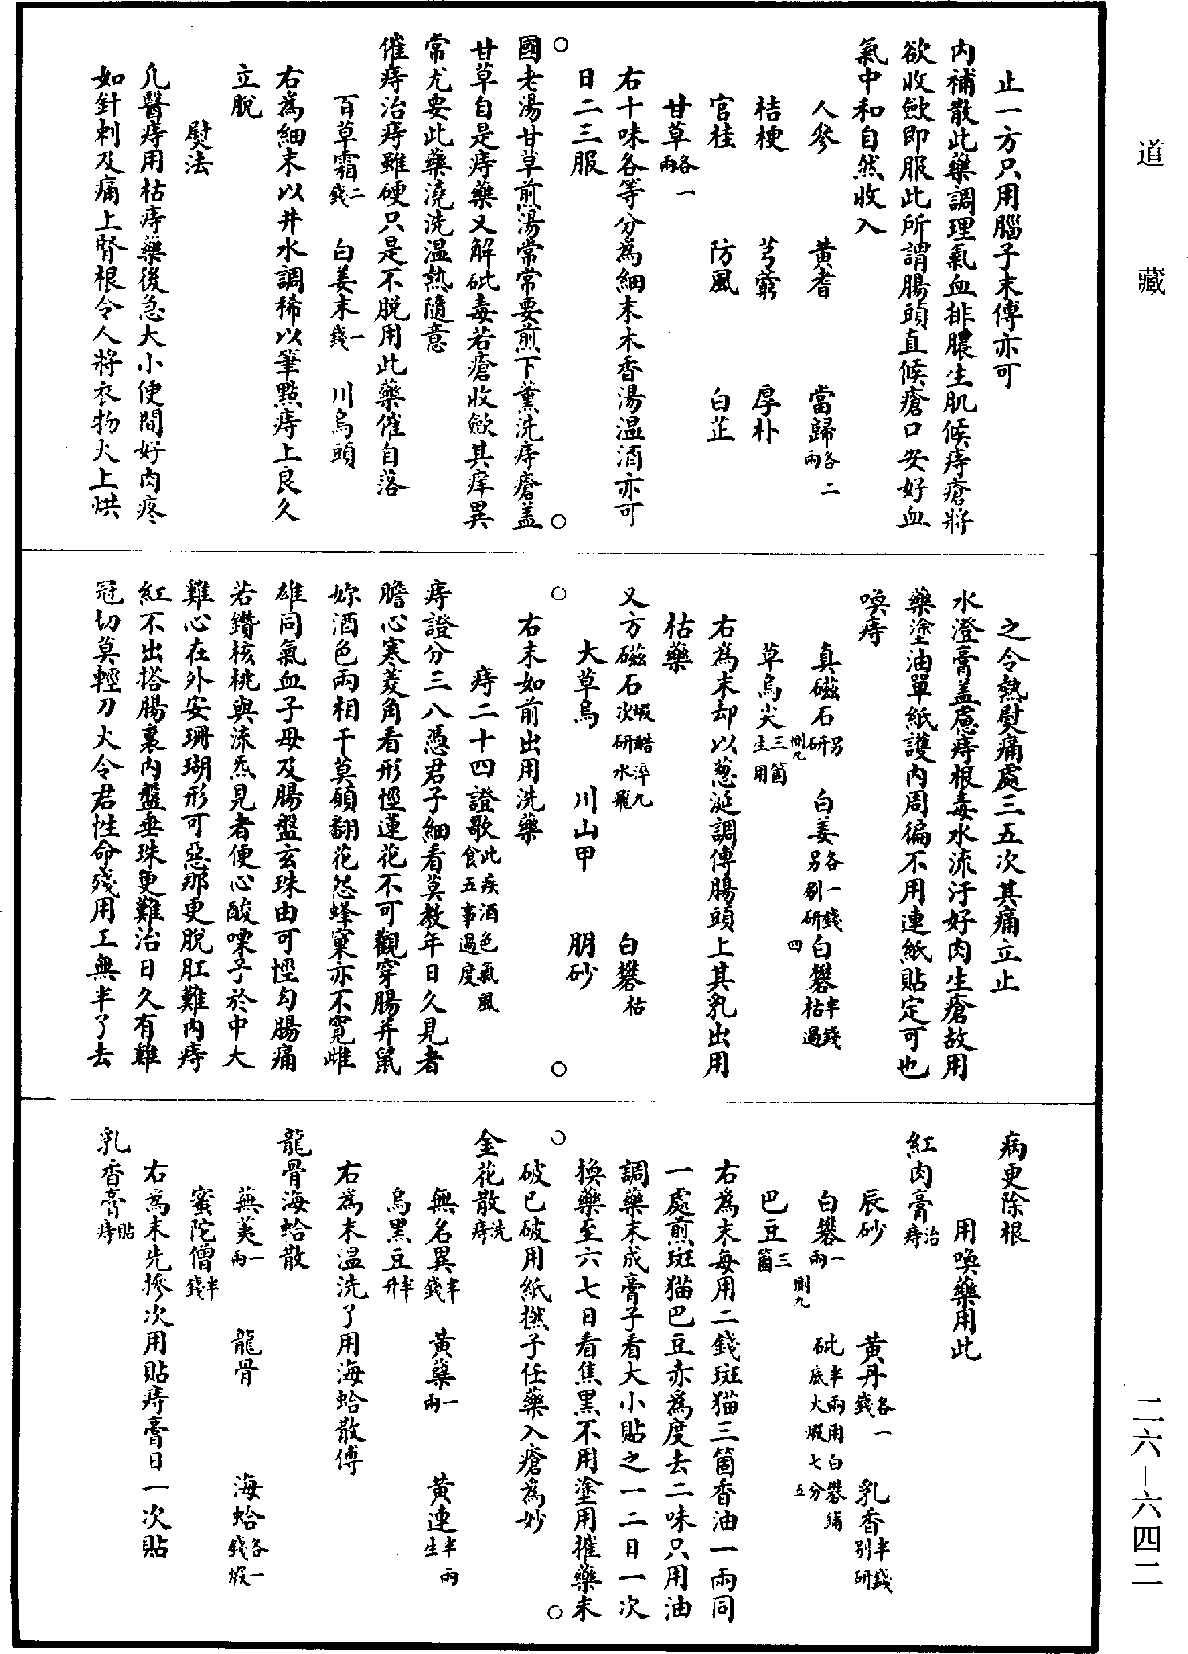 道藏
止一方只用腦子末傅亦可
內補散此藥調理氣血排膿生肌候痔瘡將
欲收歛即服此所謂腸頭直候瘡口安好血
氣中和自然收入
人參　黃耆　當歸各二兩
桔梗　芎藭　厚朴
官桂　防風　白芷
甘草各一兩
右十味各等分為細末木香湯温酒亦可
日二三服
國老湯甘草煎湯常常要煎下薰洗痔瘡盖
甘草自是痔藥又解砒毒若瘡收歛其痒異
常尤要此藥澆洗温熱隨意
催痔治痔雖硬只是不脫用此藥催自落
百草霜二錢　白姜末一錢　川烏頭
右為細末以井水調稀以筆點痔上良久
立脫
熨法
凢醫痔用枯痔藥後急大小便間好肉疼
如針刺及痛上腎根令人將衣物火上烘
之令熱熨痛處三五次其痛立止
水澄膏盖慮痔根毒水流汙好肉生瘡故用
藥塗油單紙護內周徧不用連紙貼定可也
喚痔
真磁石另研　白姜各一錢另別研　白礬半錢枯過
草烏尖三箇生用
右為末却以葱涎調傅腸頭上其乳出用
枯藥
又方磁石煆醋淬九次研水飛　白礬枯
大草烏　川山甲　朋砂
右末如前出用洗藥
痔二十四證歌此疾酒色氣風食五事過度
痔證分三八憑君子細看莫教年日久見者
膽心寒菱角看形慳蓮花不可觀穿腸并鼠
妳酒色兩相干莫頋翻花怨蜂窠亦不寬雌
雄同氣血子母及腸盤玄珠由可慳勾腸痛
若鑽核桃與流炁見者便心酸㗚子於中大
雞心在外安珊瑚形可惡那更脫肛難內痔
紅不出搭腸裏內盤垂珠更難治日久有雞
冠切莫輕刀火令君性命殘用工無半了去
病更除根
用喚藥用此
紅肉膏治痔
辰砂　黃丹各一錢　乳香半錢別研
白礬一兩　砒半兩用白礬鋪底火煆七分
巴豆三箇
右為末每用二錢斑猫三箇香油一兩同
一處煎斑猫巴豆赤為度去二味只用油
調藥末成膏子看大小貼之一二日一次
換藥至六七日看焦黑不用塗用摧藥末
破已破用紙撚子任藥入瘡為妙
金花散洗痔
無名異半錢　黃蘗一兩　黃連半兩生
烏黑豆半升
右為末温洗了用海蛤散傅
龍骨海蛤散
蕪荑一兩　龍骨　海蛤各一錢煆
蜜陀僧半錢
右為末先摻次用貼痔膏日一次貼
乳香膏貼痔
惻九　四
惻九　五
二六—六四二